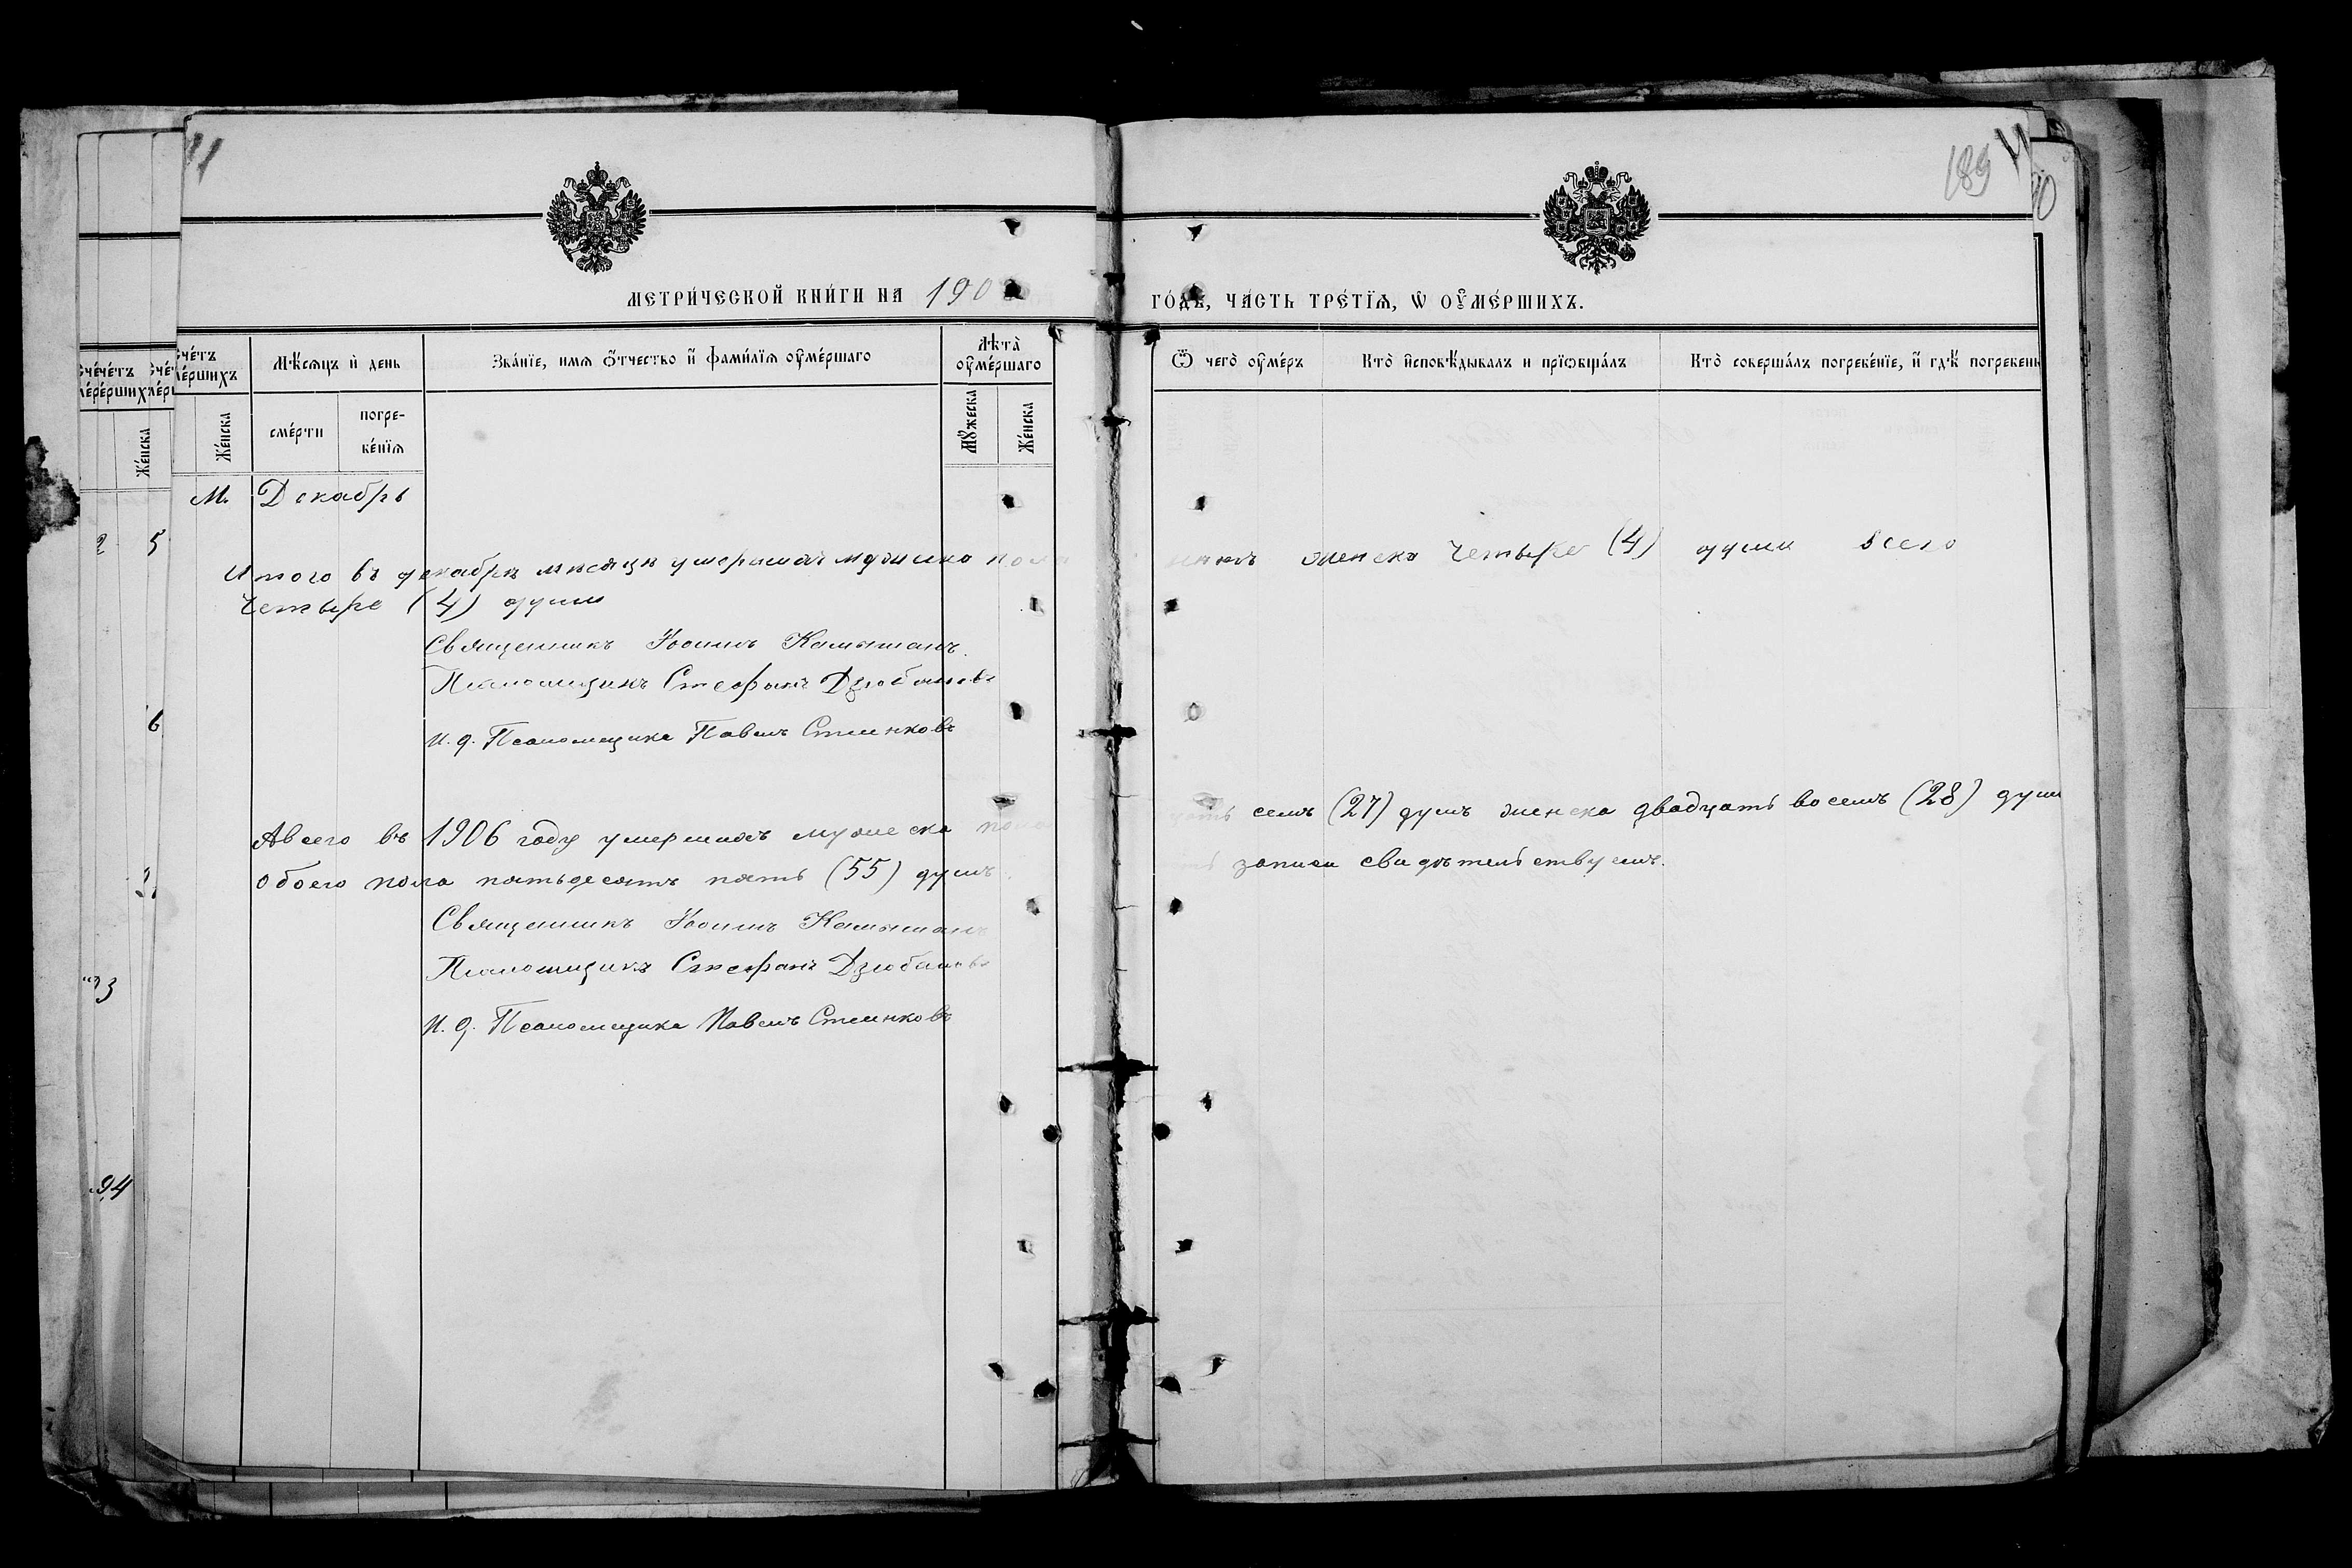 189
МЕТРИ́ЧЕСКОЙ КНИ́ГИ НА 190
ГО́ДЪ, ЧА́СТЬ ТРЕ́ТЇѦ, Ѡ҆ ОУ҆МЕ́РШИХЪ.
Мѣ́сѧцъ и҆ день
Зва́нїе, имѧ ѻ҆́тчество и҆ фами́лїѧ оу҆ме́ршаго
Лѣта̀ оу҆ме́ршаго
Ѿ чегѡ̀ оу҆ме́ръ
Кто̀ и҆сповѣ́дывалъ и прїѡбща́лъ
Кто̀ соверша́лъ погребе́нїе, и҆ гдѣ̀ погребены
Же́нска
сме́рти
погре-
бе́нїѧ
Мꙋ́жеска
Же́нска
М. Декабрь
Итого въ декабрѣ мѣсяцѣ умершихъ мужеска
женска четыре (4) души всего
четыре (4) души
Священникъ Іоаннъ Камышанъ.
Псаломщикъ Стефанъ Дзюбановъ
И. д. Псаломщика Павелъ
А всего въ 1906 году умершихъ мужеска пола
семь (27) душъ женска двадцать восемь (28) душ
обоего пола пятьдесятъ пять (55) душъ.
записи свидѣтельствуемъ.
Священникъ Іоаннъ Камышанъ
Псаломщикъ Стефанъ Дзюбановъ
И. д. Псаломщика Павелъ